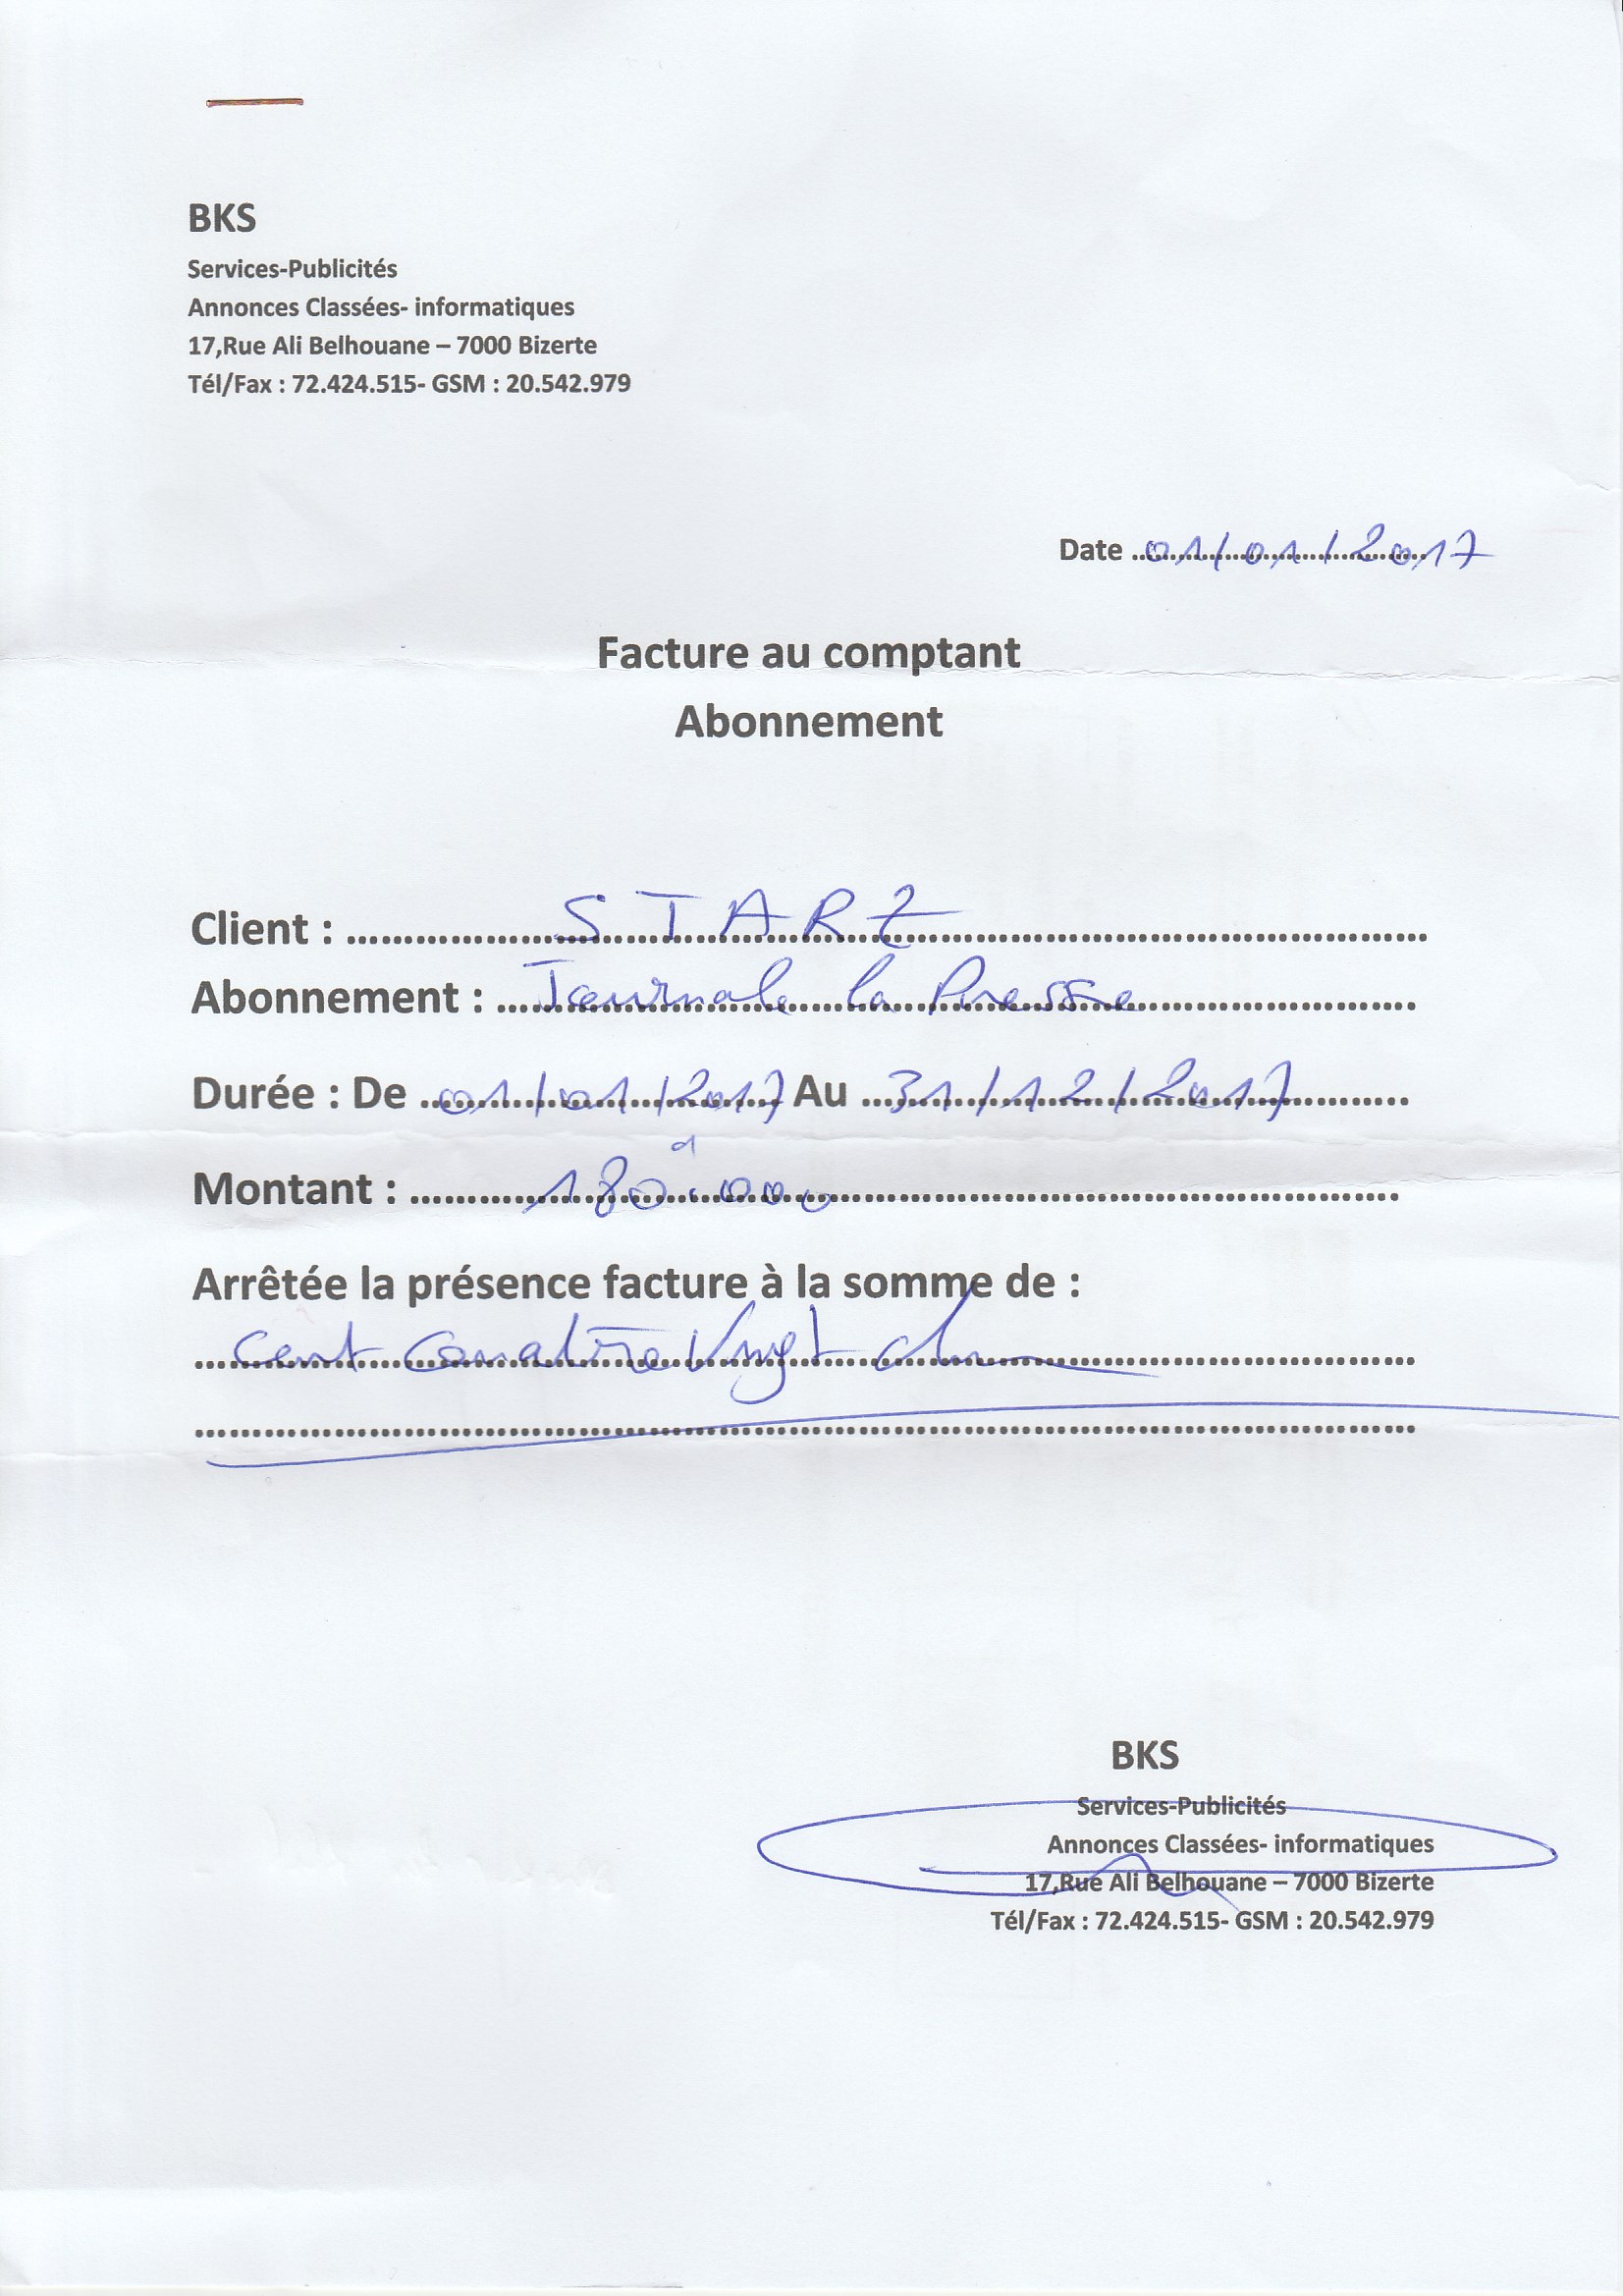 BKS
Services-Publicités
Annonces Classées- informatiques
17,Rue Ali Belhouane – 7000 Bizerte
Tél/Fax : 72.424.515- GSM : 20.542.979
Date 01/01/2017
Facture au comptant
Abonnement
Client : STARZ
Abonnement : Journale la Presse
Durée : De 01/01/2017 Au 31/12/2017
Montant : 180d.000
Arrêtée la présence facture à la somme de :
Cent Vingt
BKS
Services-Publicités
Annonces Classées- informatiques
17,Rue Ali Belhouane – 7000 Bizerte
Tél/Fax : 72.424.515- GSM : 20.542.979